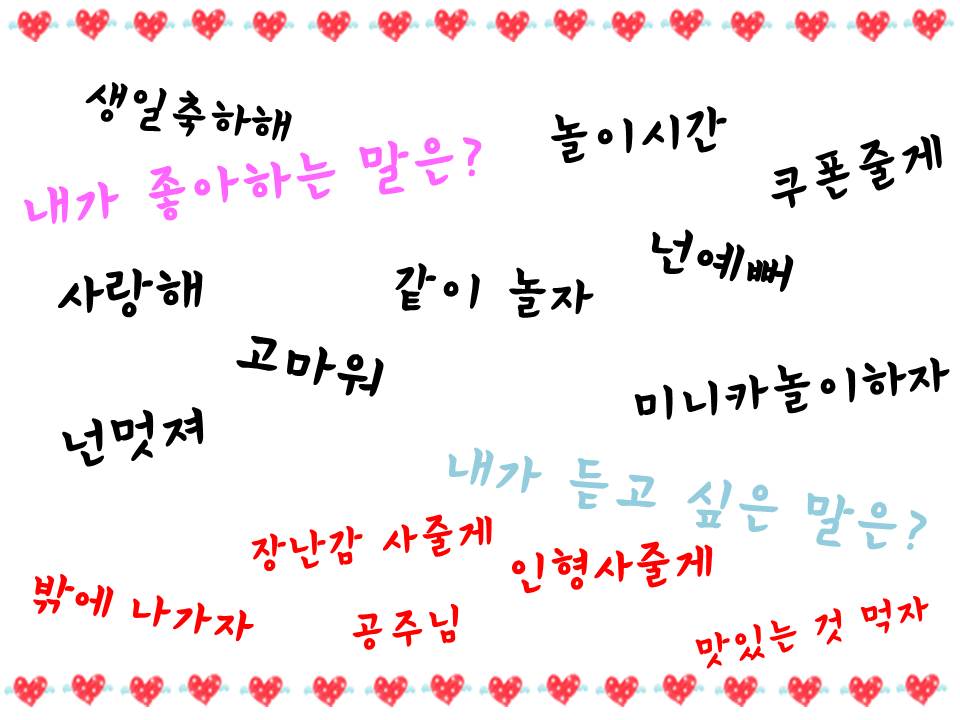 생일축하해
놀이시간
쿠폰줄게
내가 좋아하는 말은?
넌예뻐
사랑해
같이 놀자
고마워
미니카놀이하자
넌멋져
내가 듣고 싶은 말은?
장난감 사줄게
인형사줄게
밖에 나가자
공주님
맛있는 것 먹자